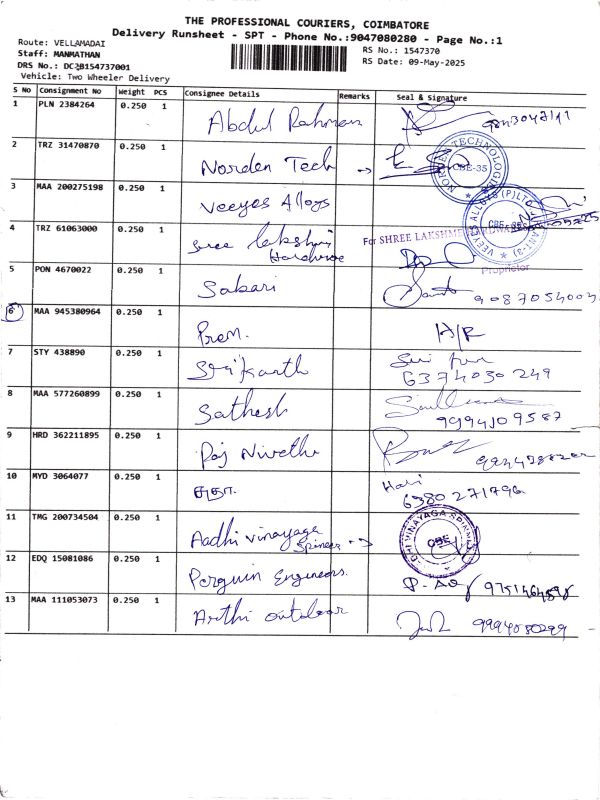 THE PROFESSIONAL COURIERS, COIMBATORE
Delivery Runsheet - SPT - Phone No.:9047080280 - Page No.:1
Route: VELLAMADAI
Staff: MANMATHAN
DRS No.: DC2B154737001
Vehicle: Two Wheeler Delivery
RS No.: 1547370
RS Date: 09-May-2025
S No Consignment No Weight PCS Consignee Details Remarks Seal & Signature
1 PLN 2384264 0.250 1 Abdul Rahman
2 TRZ 31470870 0.250 1 Norden Tech → CBE-35
3 MAA 200275198 0.250 1 Veeyes Alloys VEEYES ALLOYS (P) LTD
4 TRZ 61063000 0.250 1 Sree Lakshmi Hardware For SHREE LAKSHME HARDWARES
Proprietor
5 PON 4670022 0.250 1 Sabari
6 MAA 945380964 0.250 1 Prem. H/R
7 STY 438890 0.250 1 Srikanth 6374030249
8 MAA 577260899 0.250 1 Sathesh 9994109587
9 HRD 362211895 0.250 1 Raj Nivetha
10 MYD 3064077 0.250 1 சுதா. Hari 6380271796
11 TMG 200734504 0.250 1 Aadhi Vinayaga Spiners CBE
12 EDQ 15081086 0.250 1 Penguin Engineers.
13 MAA 111053073 0.250 1 Arthi outdoor